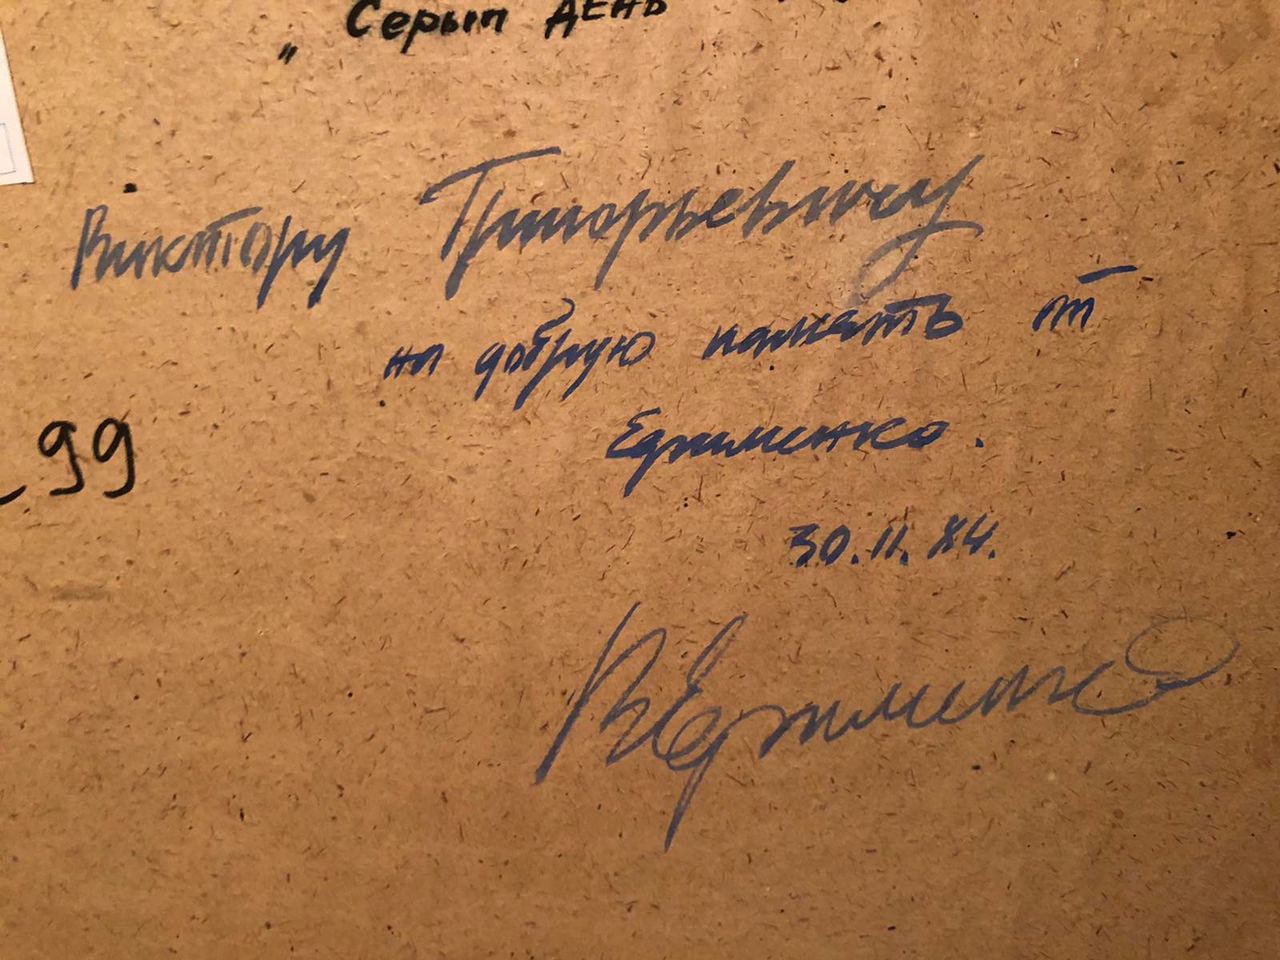 „ Серый ДЕНЬ
Виктору Григорьевичу
на добрую память от
99
Ефименко.
30.11.84.
ВЕфименко